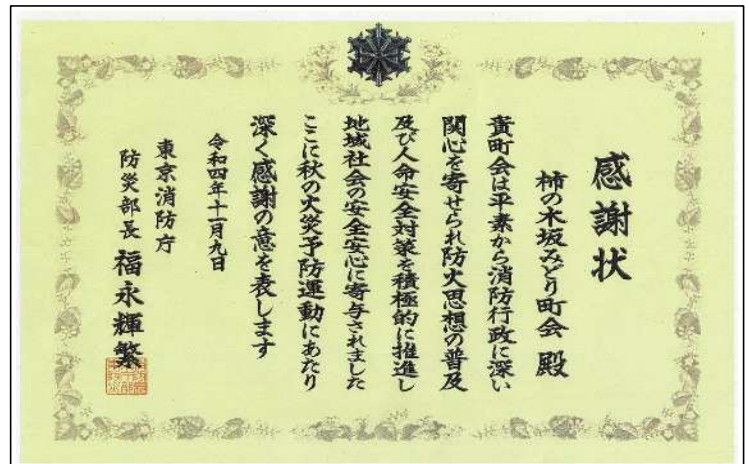 感謝状
柿の木坂みどり町会 殿
貴町会は平素から消防行政に深い
関心を寄せられ防火思想の普及
及び人命安全対策を積極的に推進し
地域社会の安全安心に寄与されました
ここに秋の火災予防運動にあたり
深く感謝の意を表します
令和四年十一月九日
東京消防庁
防災部長 福永輝繁